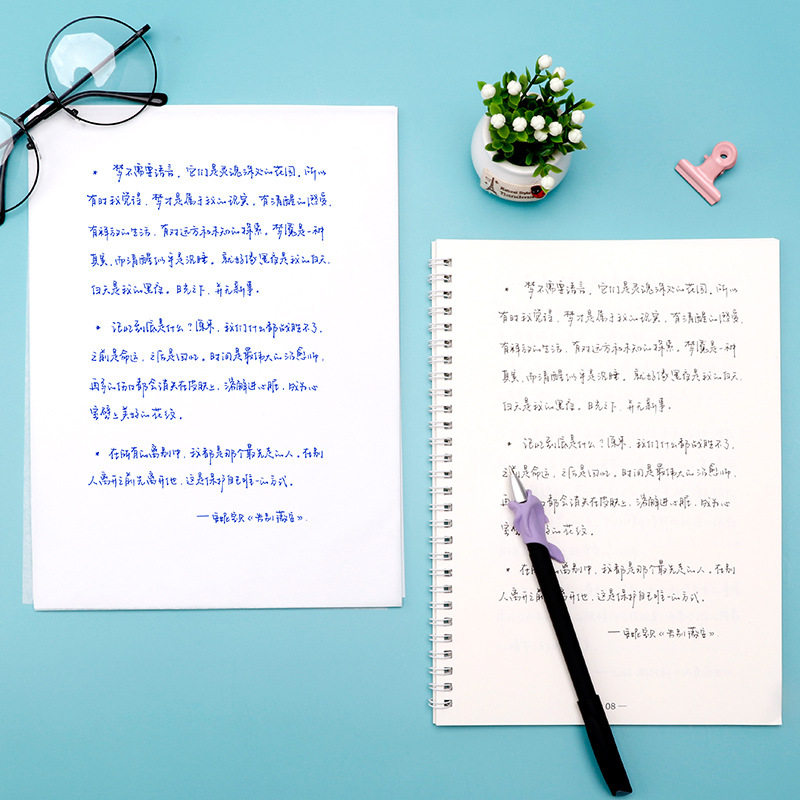 * 梦不需要语言，它们是灵魂深处的花园。所以
有时我觉得，梦才是属于我的现实，有清醒的感受，
有释放的生活，有对远方和未知的探索。梦魇是一种
真实，而清醒似乎是沉睡。就好像黑夜是我的白天，
白天是我的黑夜。日光之下，并无新事。
* 记忆到底是什么？原来，我们什么都战胜不了，
之前是命运，之后是回忆。时间是最伟大的治愈师，
再多的伤口都会消失在皮肤上，溶解进心脏，成为心
室壁上美好的花纹。
* 在所有的离别中，我都是那个最先走的人。在别
人离开之前先离开他，这是保护自己唯一的方式。
——安妮宝贝《告别薇安》
Natural Style
* 梦不需要语言，它们是灵魂深处的花园。所以
有时我觉得，梦才是属于我的现实，有清醒的感受，
有释放的生活，有对远方和未知的探索。梦魇是一种
真实，而清醒似乎是沉睡。就好像黑夜是我的白天，
白天是我的黑夜。日光之下，并无新事。
* 记忆到底是什么？原来，我们什么都战胜不了，
之前是命运，之后是回忆。时间是最伟大的治愈师，
再 口都会消失在皮肤上，溶解进心脏，成为心
室壁 好的花纹。
* 在 的离别中，我都是那个最先走的人。在别
人离开之前 离开他，这是保护自己唯一的方式。
——安妮宝贝《告别薇安》
08—